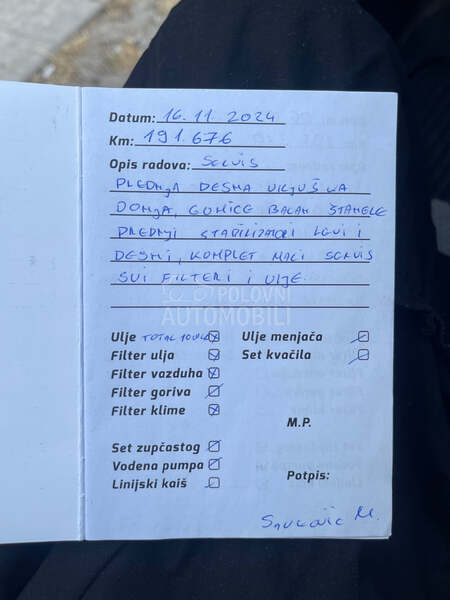 Datum: 16.11.2024
Km: 191.676
Opis radova: SERVIS
PREDNJA DESNA VILJUŠKA
DONJA, GUMICE BALAN ŠTANGLE
PREDNJI STABILIZATORI LEVI I
DESNI, KOMPLET MALI SERVIS
SVI FILTERI I ULJE.
POLOVNI
AUTOMOBILI
Ulje TOTAL 10W40 Ulje menjača
Filter ulja Set kvačila
Filter vazduha
Filter goriva
Filter klime
M.P.
Set zupčastog
Vodena pumpa
Potpis:
Linijski kaiš